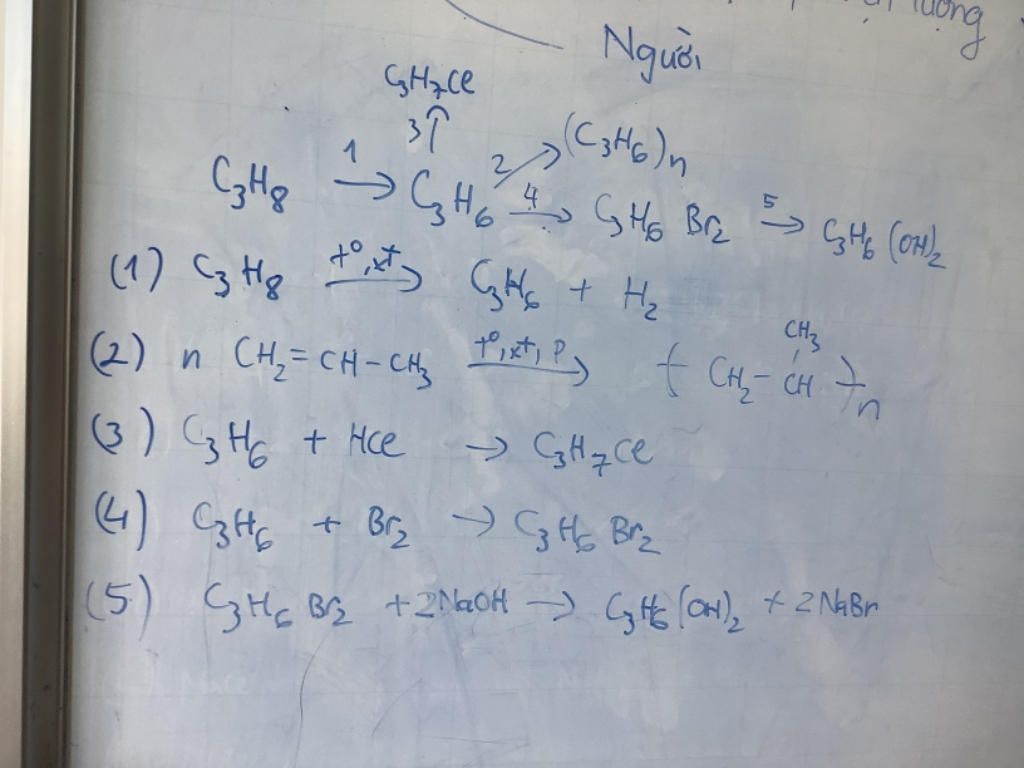 lượng
Người
C₃H₇Cl
3 ↑
C₃H₈ →¹ C₃H₆ ↗² (C₃H₆)n
C₃H₆ →⁴ C₃H₆Br₂ →⁵ C₃H₆(OH)₂
(1) C₃H₈ →(t°, xt) C₃H₆ + H₂
(2) n CH₂=CH–CH₃ →(t°, xt, P) (CH₂–CH(CH₃))n
(3) C₃H₆ + HCl → C₃H₇Cl
(4) C₃H₆ + Br₂ → C₃H₆Br₂
(5) C₃H₆Br₂ + 2NaOH → C₃H₆(OH)₂ + 2NaBr